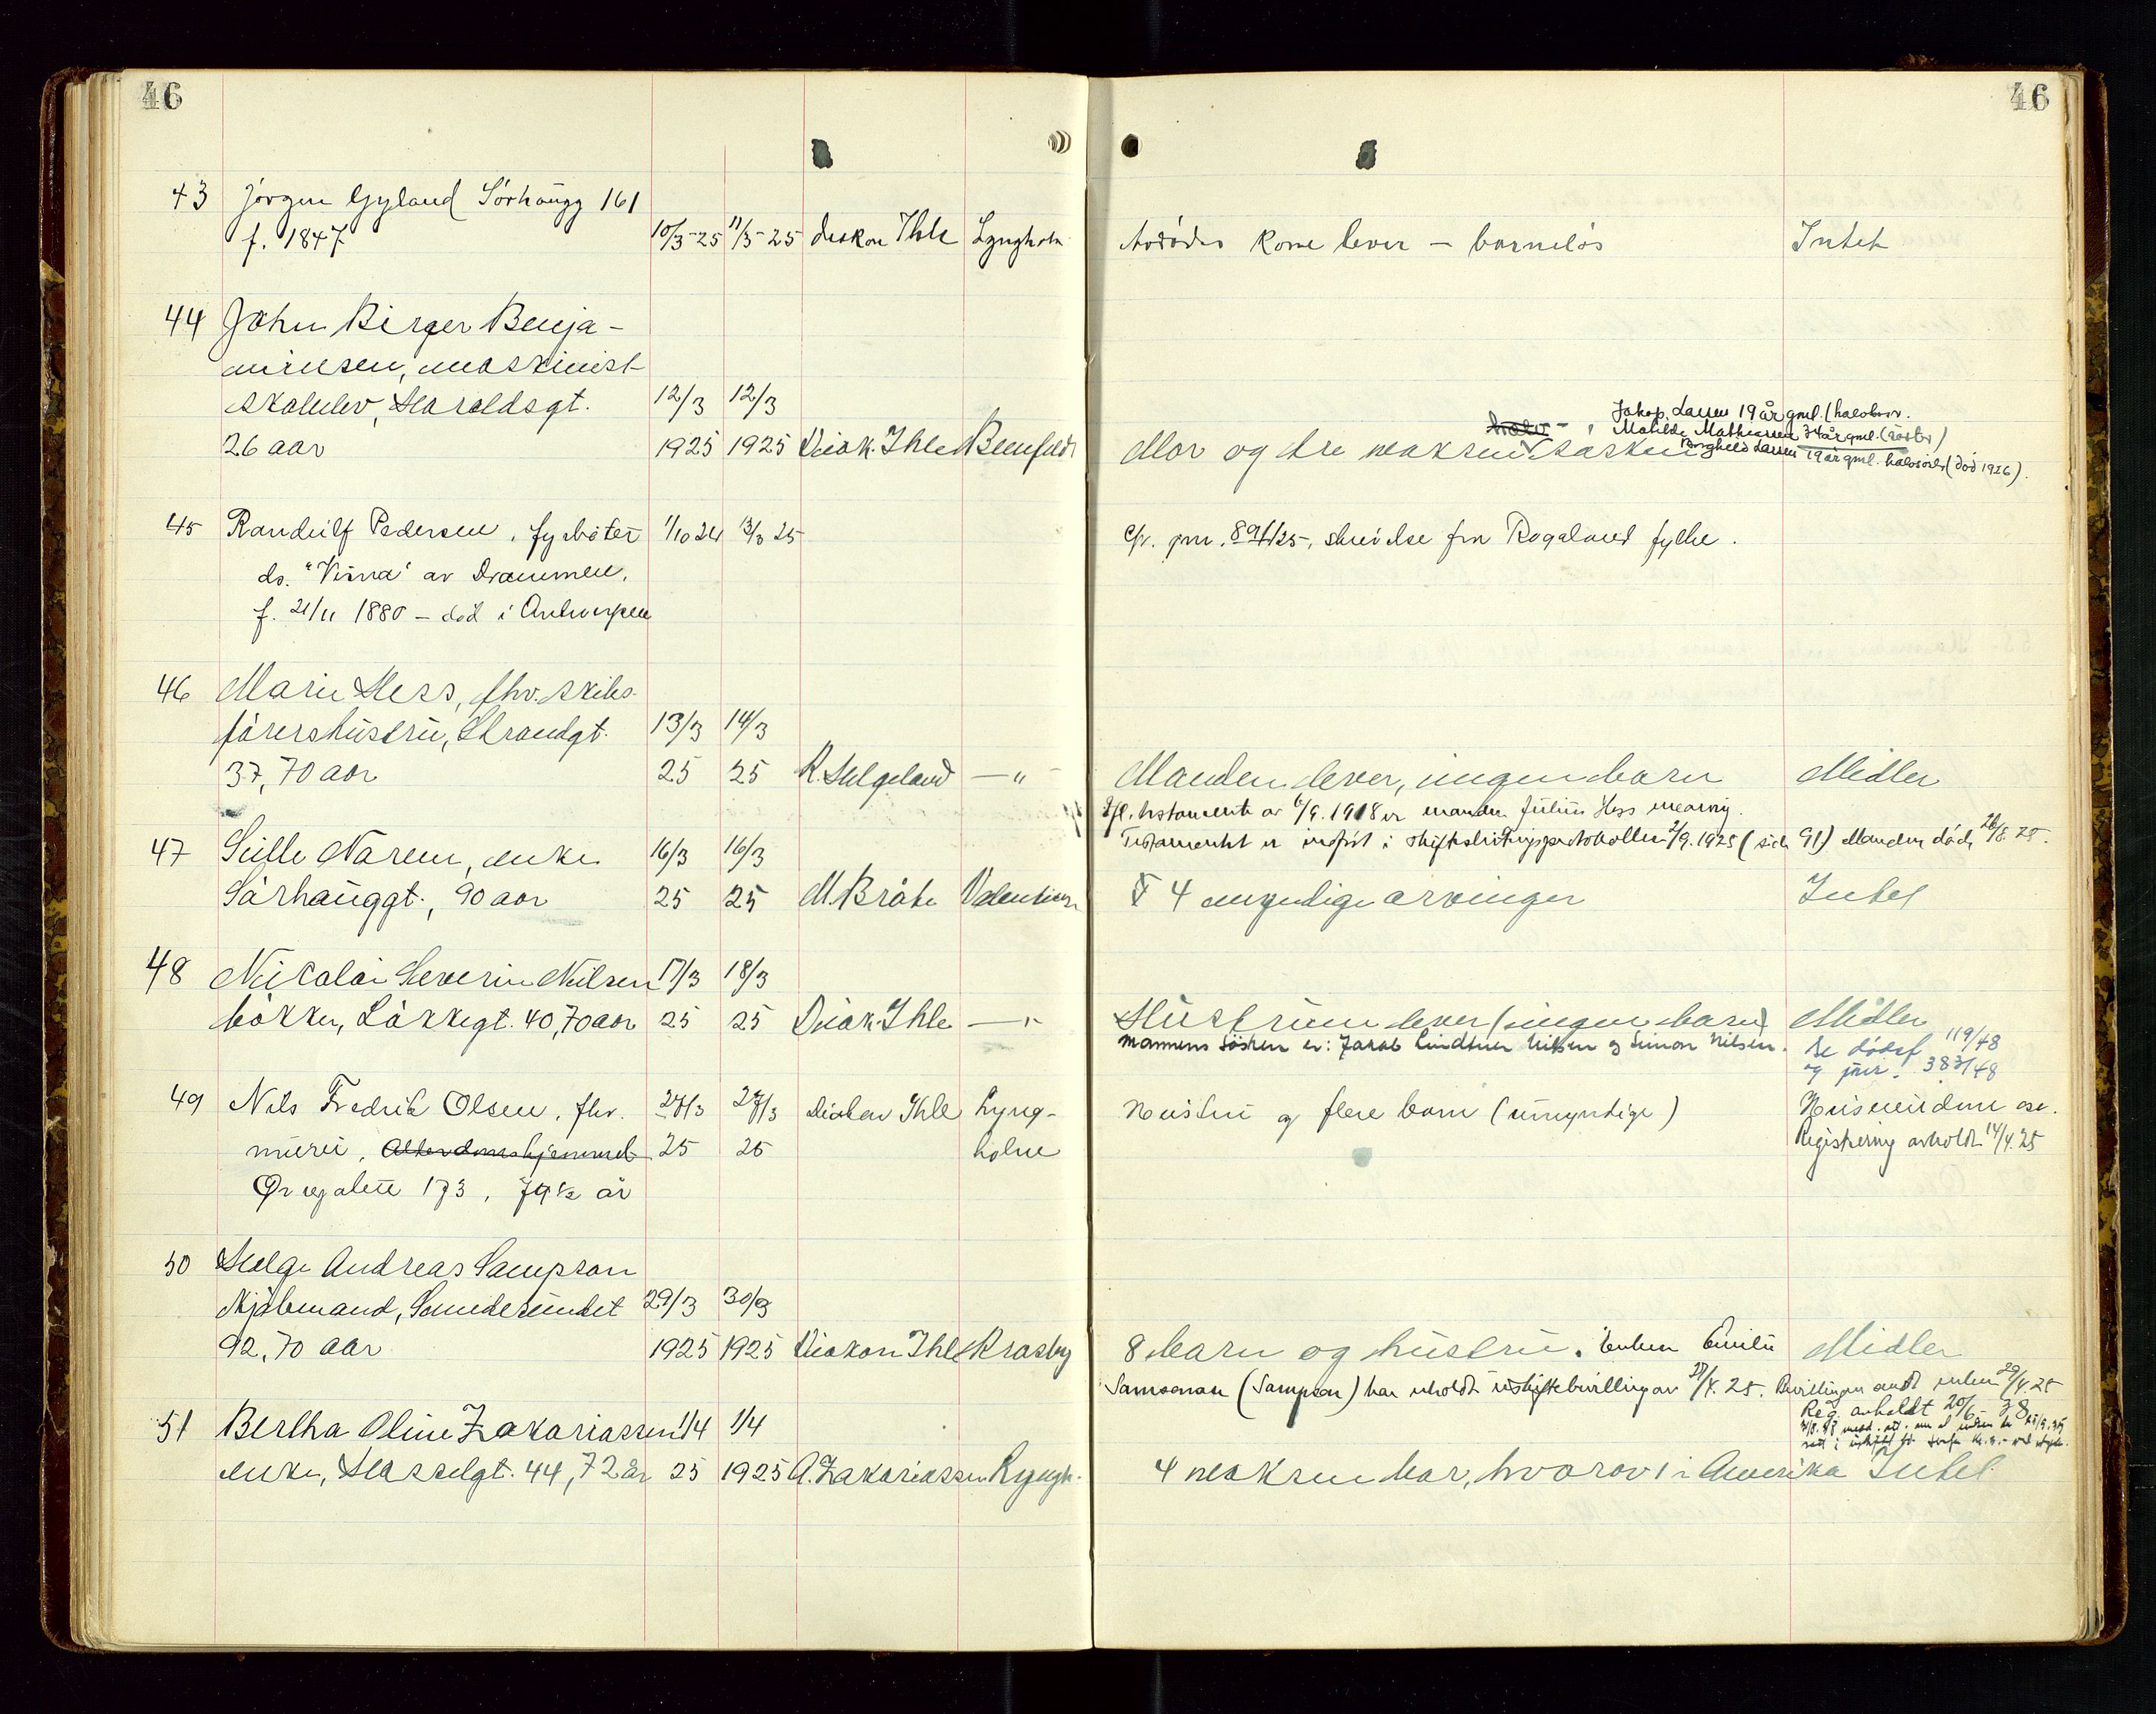 46
43 Jörgen Gyland Sörhaugg 161
f. 1847 10/3-25 11/3-25 diakon Ihle Lyngholm
44 John Birger Benja-
minsen, maskinist
skoleelev, Haraldsgt. 12/3 12/3
26 aar 1925 1925 Diak. Ihle
45 Randulf Pedersen, fyrböter 1/10 24 13/3 25
ds. "Visna" av Drammen.
f. 21/11 1880 – död i Antwerpen
46 Marie Hess, fhv. skibs-
förershustru, Strandgt. 13/3 14/3
37, 70 aar 25 25 K. Helgeland — " —
47 Sille Naren, enke 16/3 16/3
Sörhauggt., 90 aar 25 25 M. Bråte Valentinsen
48 Nikolai Severin Nilsen 17/3 18/3
bökker, Lökkegt. 40, 70 aar 25 25 Diak. Ihle — " —
49 Nils Fredrik Olsen, fhv. 27/3 27/3 diakon Ihle Lyng-
murer, Alderdomshjemmet 25 25 holm
Øvregaten 173, 79 1/2 år
50 Helge Andreas Sampson
Mjölmand, Smedesundet 29/3 30/3
92, 70 aar 1925 1925 Diakon Ihle Krosby
51 Bertha Oline Zakariassen 1/4 1/4
enke, Hasselgt. 44, 72 år 25 1925 A. Zakariassen Lyngh.
46
Avdödes kone lever – barnelös Intet
Jakop Larsen 19 år gml. (halvbror.
Matilde Mathiasen 34 år gml. (söster)
Mor og tre voksne søsken Borghild Larsen 19 år gml. halvsöster (död 1926).
cfr. jnr. 891/25, skrivelse fra Rogaland fylke.
Manden lever, ingen barn Midler
Ifl. testamente av 6/9. 1918 er manden Julius Hess enearving.
Testamentet er indført i skifteslutningsprotokollen 2/9. 1925 (side 91) Manden död 26/8. 25.
4 myndige arvinger Intet
Hustruen lever (ingen barn) Midler
Mannens søsken er: Jakob Lindtner Nilsen og Simon Nilsen. Se dödsf 119/48
og jnr. 383/48
Hustru og flere barn (umyndige) Huseiendom osv.
Registrering avholdt 14/4. 25
8 barn og hustru. Enken Emilie Midler
Samsonsen (Sampson) har erholdt uskiftebevilling av 27/4. 25. Bevillingen sendt enken 29/4. 25
Reg. avholdt 20/6 – 38
4 voksne barn, hvorav 1 i Amerika Intet